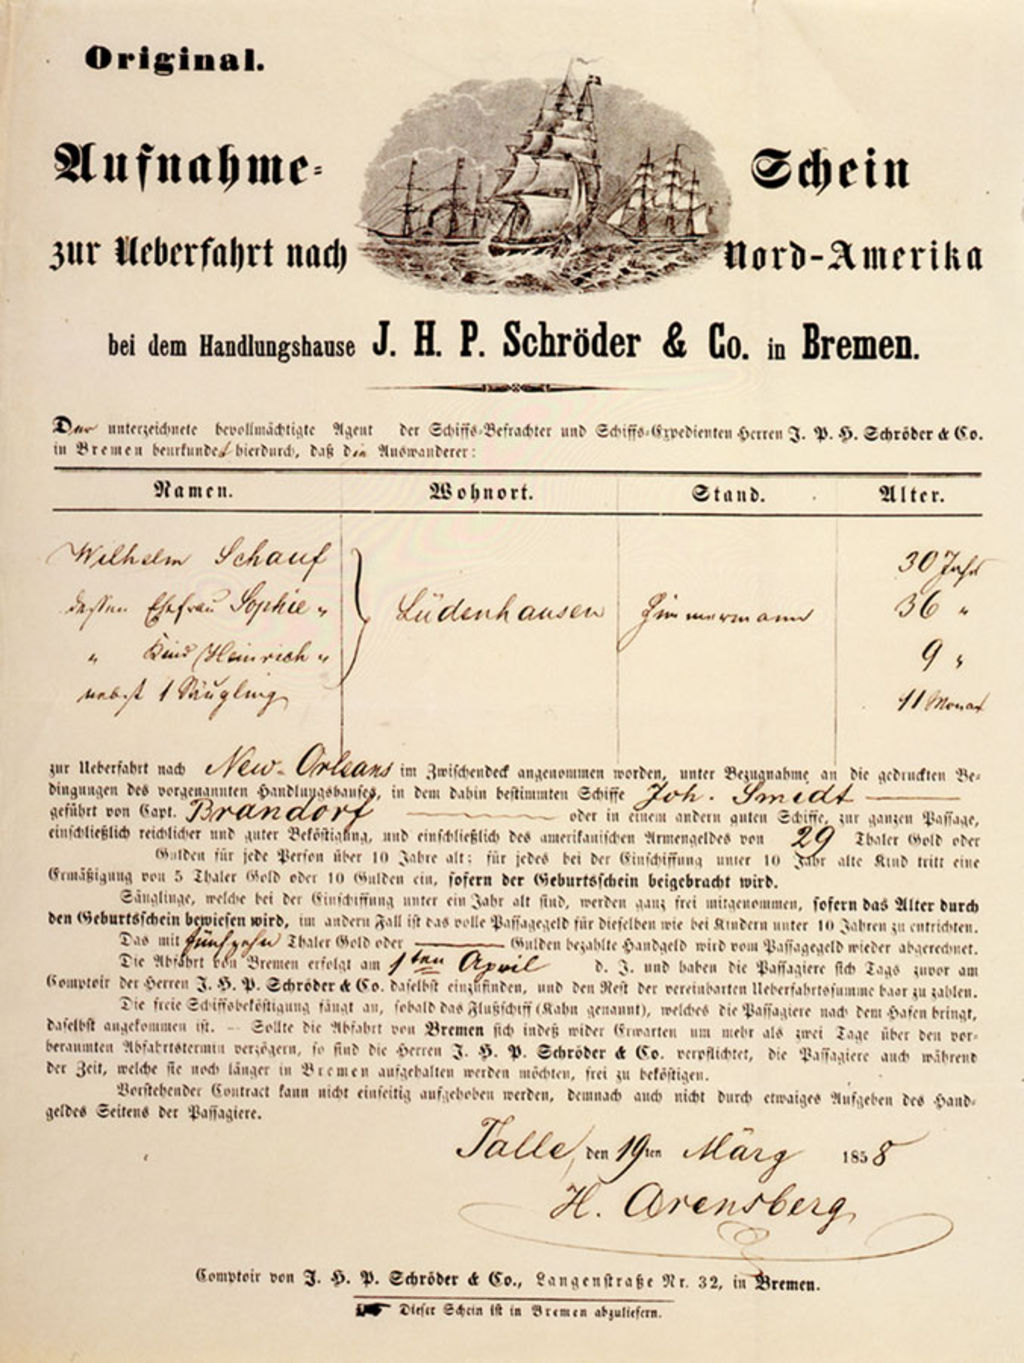 Original.
Aufnahme- Schein
zur Ueberfahrt nach Nord-Amerika
bei dem Handlungshause J. H. P. Schröder & Co. in Bremen.
Der unterzeichnete bevollmächtigte Agent der Schiffs-Befrachter und Schiffs-Expedienten Herren J. P. H. Schröder & Co.
in Bremen beurkundet hierdurch, daß die Auswanderer:
Namen. Wohnort. Stand. Alter.
Wilhelm Schauf 30 Jahr
dessen Ehefrau Sophie " Lüdenhausen Zimmermann 36 "
" Kind Heinrich " 9 "
nebst 1 Säugling 11 Monat
zur Ueberfahrt nach New-Orleans im Zwischendeck angenommen worden, unter Bezugnahme an die gedruckten Be-
dingungen des vorgenannten Handlungshauses, in dem dahin bestimmten Schiffe Joh. Smidt
geführt von Capt. Brandorf oder in einem andern guten Schiffe, zur ganzen Passage,
einschließlich reichlicher und guter Beköstigung, und einschließlich des amerikanischen Armengeldes von 29 Thaler Gold oder
Gulden für jede Person über 10 Jahre alt; für jedes bei der Einschiffung unter 10 Jahr alte Kind tritt eine
Ermäßigung von 5 Thaler Gold oder 10 Gulden ein, sofern der Geburtsschein beigebracht wird.
Säuglinge, welche bei der Einschiffung unter ein Jahr alt sind, werden ganz frei mitgenommen, sofern das Alter durch
den Geburtsschein bewiesen wird, im andern Fall ist das volle Passagegeld für dieselben wie bei Kindern unter 10 Jahren zu entrichten.
Das mit fünfzehn Thaler Gold oder Gulden bezahlte Handgeld wird vom Passagegeld wieder abgerechnet.
Die Abfahrt von Bremen erfolgt am 1ten April d. J. und haben die Passagiere sich Tags zuvor am
Comptoir der Herren J. H. P. Schröder & Co. daselbst einzufinden, und den Rest der vereinbarten Ueberfahrtssumme baar zu zahlen.
Die freie Schiffsbeköstigung fängt an, sobald das Flußschiff (Kahn genannt), welches die Passagiere nach dem Hafen bringt,
daselbst angekommen ist. — Sollte die Abfahrt von Bremen sich indeß wider Erwarten um mehr als zwei Tage über den vor-
beraumten Abfahrtstermin verzögern, so sind die Herren J. H. P. Schröder & Co. verpflichtet, die Passagiere auch während
der Zeit, welche sie noch länger in Bremen aufgehalten werden möchten, frei zu beköstigen.
Vorstehender Contract kann nicht einseitig aufgehoben werden, demnach auch nicht durch etwaiges Aufgeben des Hand-
geldes Seitens der Passagiere.
Talle, den 19ten März 1858
H. Arensberg
Comptoir von J. H. P. Schröder & Co., Langenstraße Nr. 32, in Bremen.
Dieser Schein ist in Bremen abzuliefern.